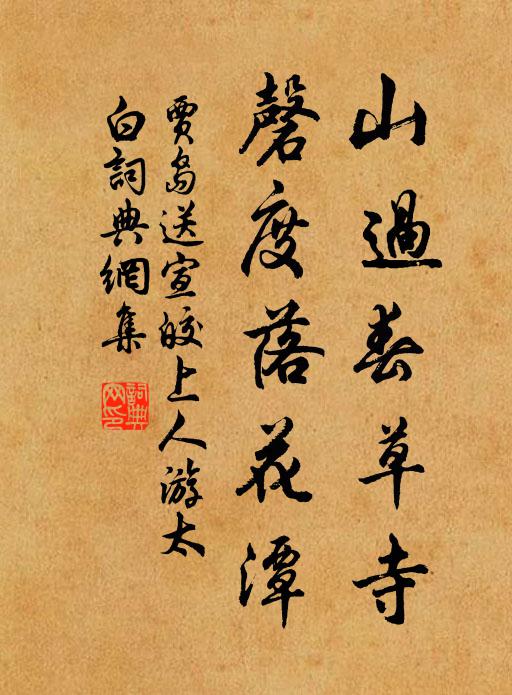 山過春草寺
磬度落花潭
賈島送宣皎上人游太
白詞典網集
詞典網印